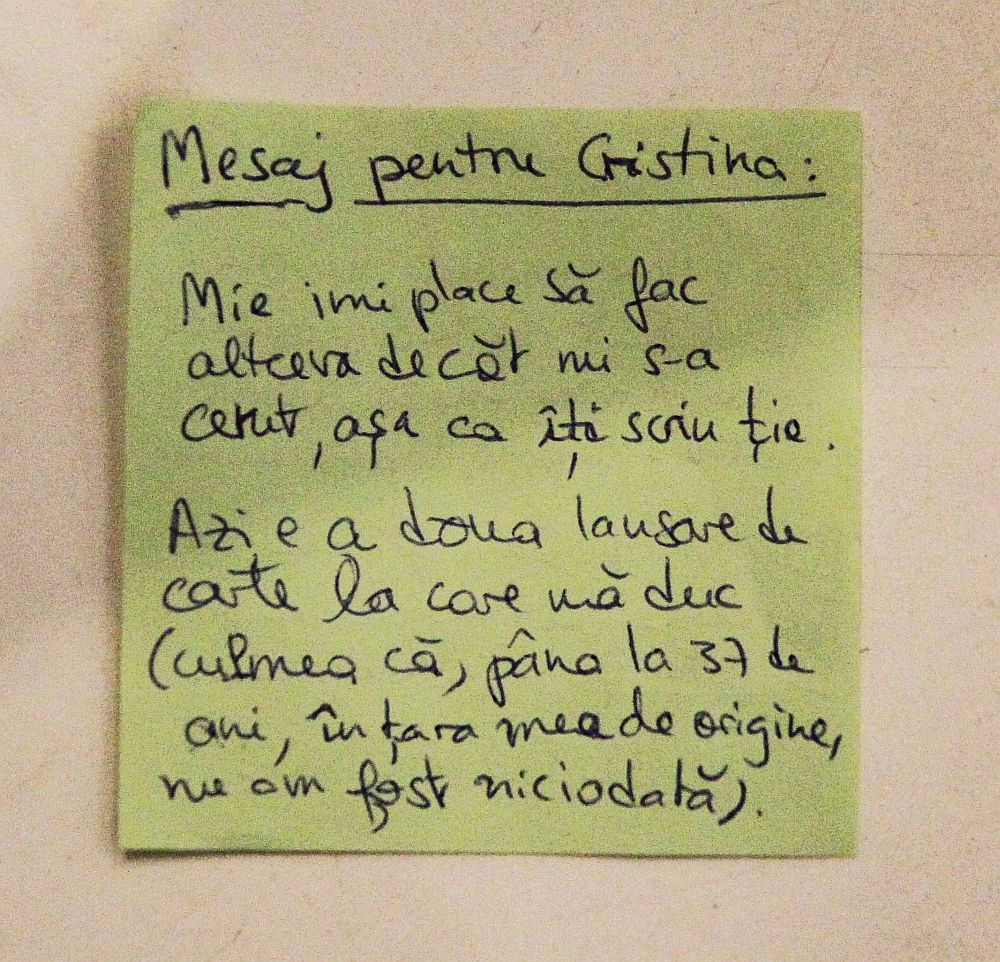 Mesaj pentru Cristina:
Mie imi place să fac
altceva decăt mi s-a
cerut, aşa ca îţi scriu ţie.
Azi e a doua lansare de
carte la care mă duc
(culmea că, pâna la 37 de
ani, în ţara mea de origine,
nu am fost niciodată).